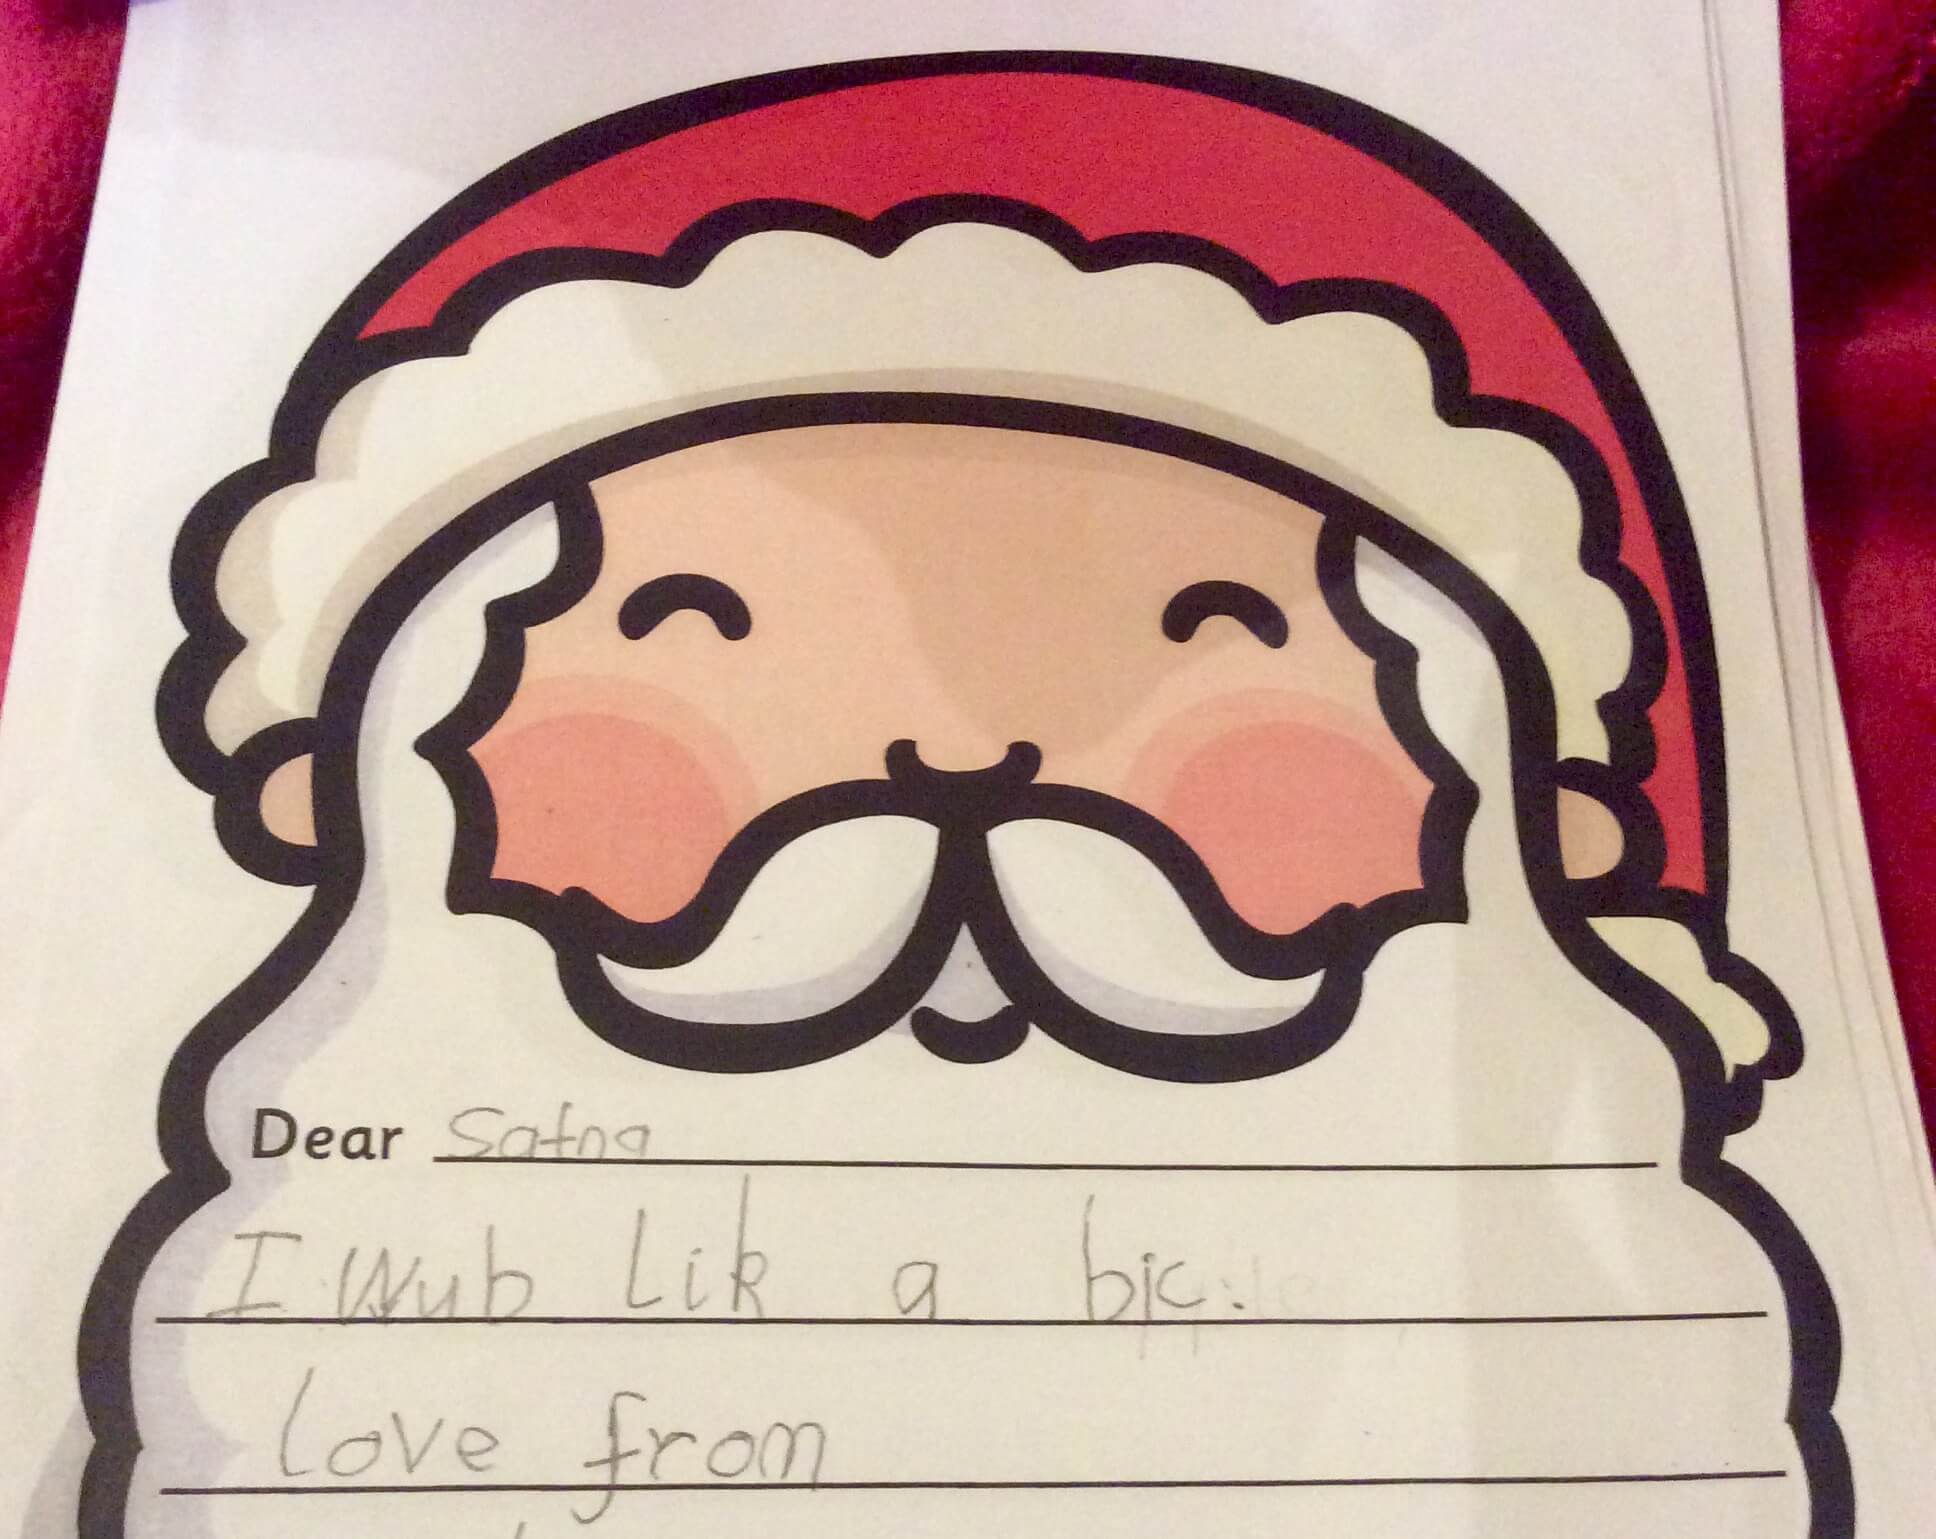 Dear Satna
I Wub Lik a bic.
Love from